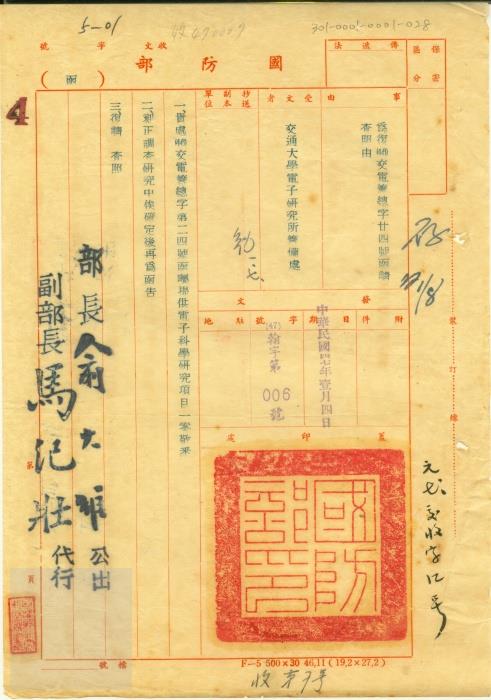 5-01
收470009
301-0001-0001-028
國防部
收文 字 號
(函)
保密區分
傳遞法
事由
為復關交電籌總字廿四號函請
查照由
受文者
交通大學電子研究所籌備處
抄送副本單位
發文
附件
日期
中華民國四七年壹月四日
字號
(47)
翰字第
006
號
駐地
蓋印處
國防部印
一、貴處關交電籌總字第二四號函囑提供電子科學研究項目一案敬悉
二、刻正調查研究中俟確定後再為函告
三、復請 查照
部長俞大維公出
副部長馬紀壯代行
存
1/8
裝 訂 線
元.七.交收字12号
4
第 頁
檔號
F—5 500×30 46,11 (19,2×27,2)